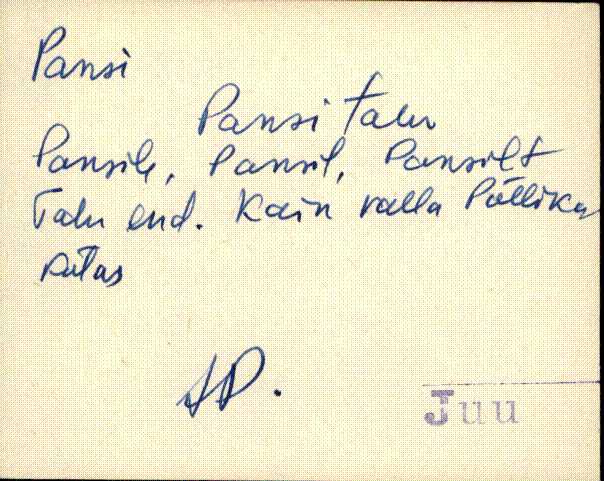 Pansi
Pansi talu
Pansile, Pansil, Pansilt
Talu end. Kain valla Põllika
kutas
AP.
Juu